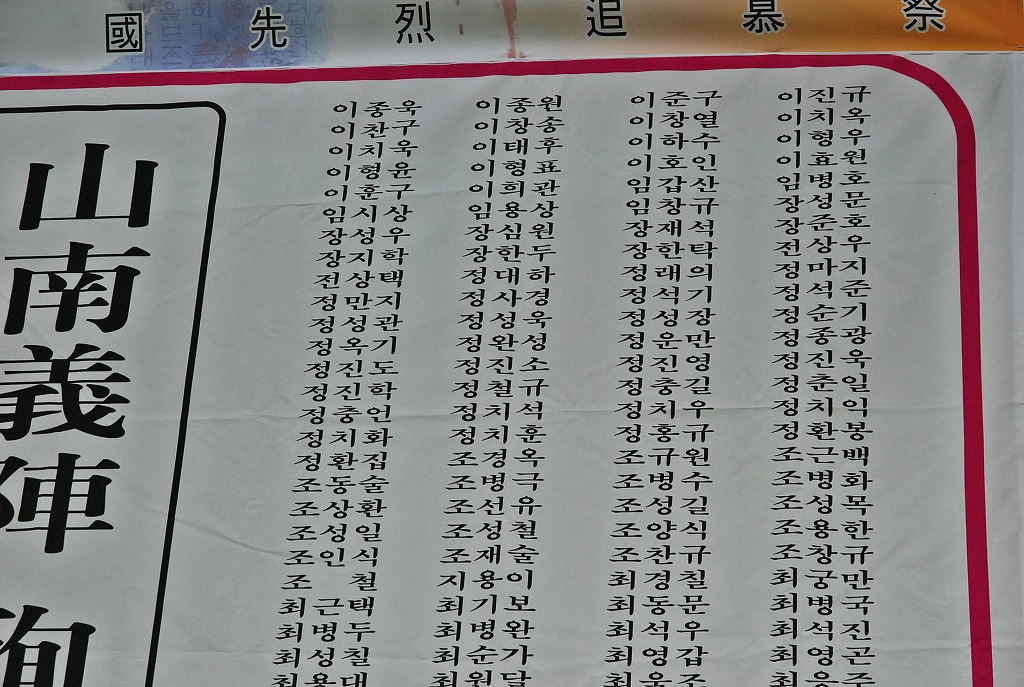 國先烈追慕祭
山南義陣
이종욱 이종원 이준구 이진규
이찬구 이창송 이창열 이치옥
이치욱 이태후 이하수 이형우
이형윤 이형표 이호인 이효원
이훈구 이희관 임갑산 임병호
임시상 임용상 임창규 장성문
장성우 장심원 장재석 장준호
장지학 장한두 장한탁 전상우
전상택 정대하 정래의 정마지
정만지 정사경 정석기 정석준
정성관 정성욱 정성장 정순기
정옥기 정완성 정운만 정종광
정진도 정진소 정진영 정진욱
정진학 정철규 정충길 정춘일
정충언 정치석 정치우 정치익
정치화 정치훈 정홍규 정환봉
정환집 조경옥 조규원 조근백
조동술 조병극 조병수 조병화
조상환 조선유 조성길 조성목
조성일 조성철 조양식 조용한
조인식 조재술 조찬규 조창규
조 철 지용이 최경칠 최궁만
최근택 최기보 최동문 최병국
최병두 최병완 최석우 최석진
최성칠 최순가 최영갑 최영곤
최용대 최원달